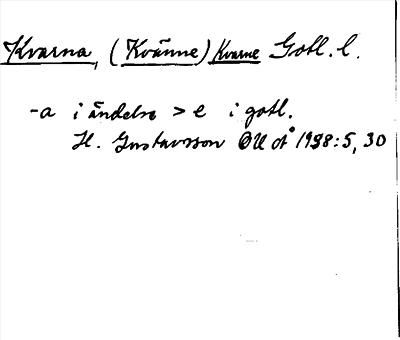 Kvarna, (Kvänne) Kvarne Gotl. l.
-a i ändelse > e i gotl.
H. Gustavsson OUÅ 1938:5, 30